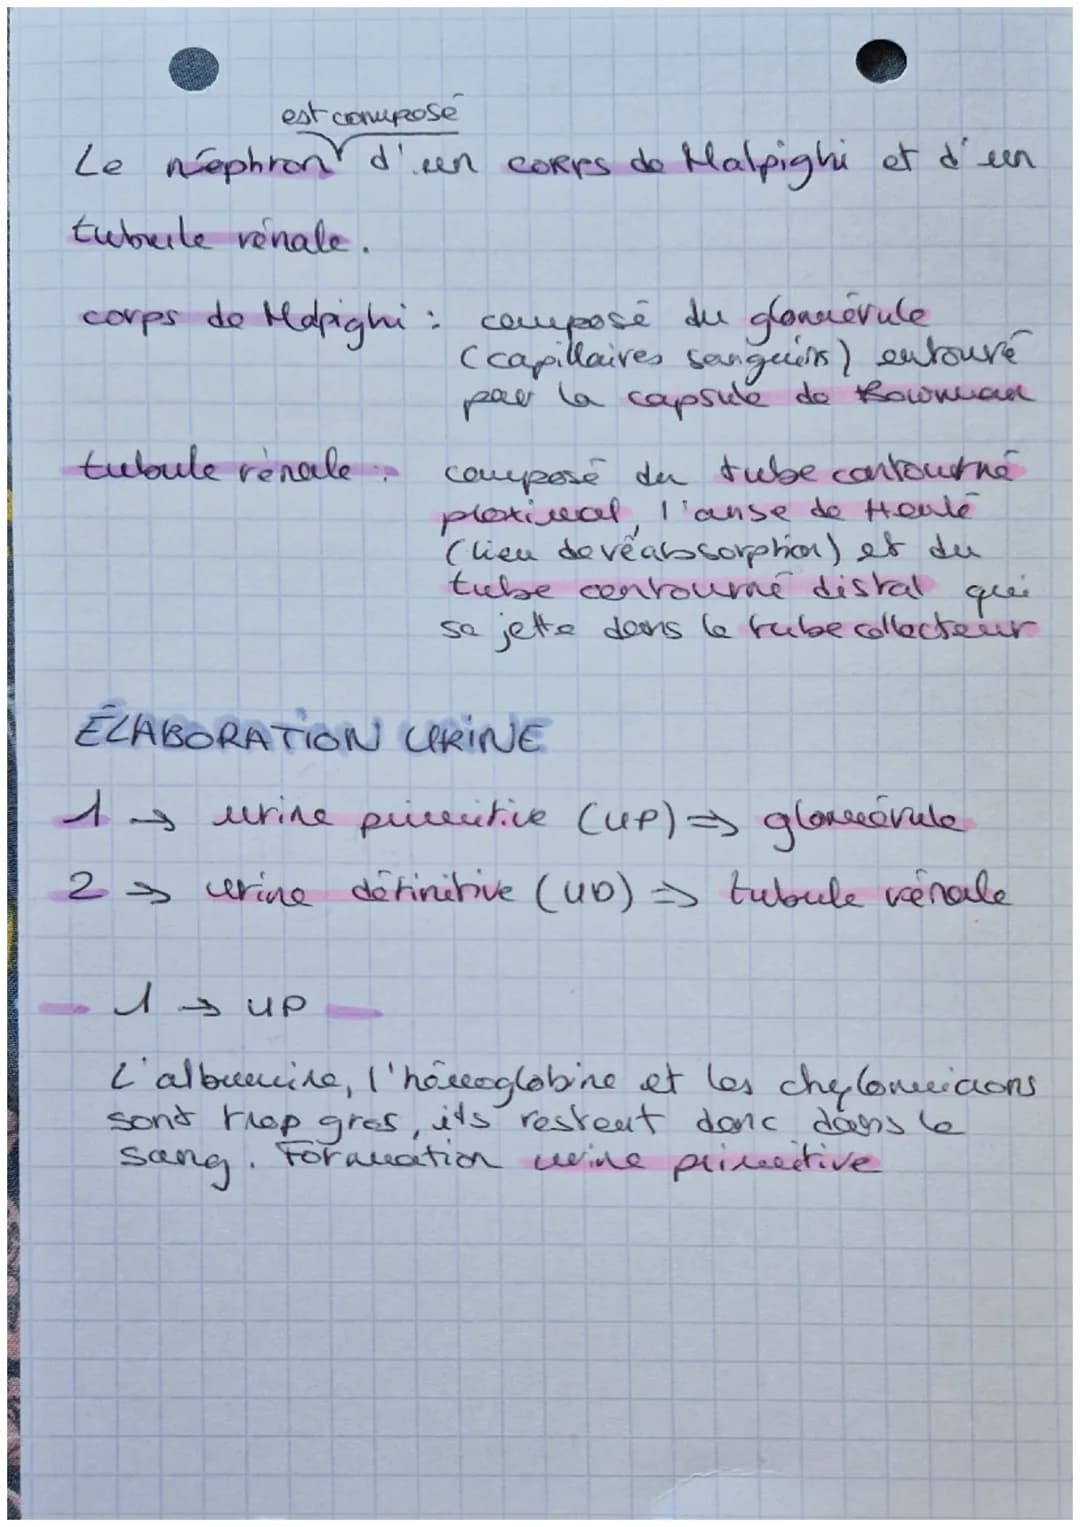 est composé
Le néphron d'un corps de Malpighi et d'un
tubule rénale.
corps de Malpighi : composé du glomérule
(capillaires sanguins) entouré
par la capsule de Bowman
tubule rénale : composé du tube contourné
proximal, l'anse de Henlé
(lieu de réabsorption) et du
tube contourné distal qui
se jette dans le tube collecteur
ÉLABORATION URINE
1 → urine primitive (UP) ⇒ glomérule
2 → urine définitive (UD) ⇒ tubule rénale
- 1 → UP -
L'albumine, l'hémoglobine et les chylomicrons
sont trop gros, ils restent donc dans le
sang. Formation urine primitive